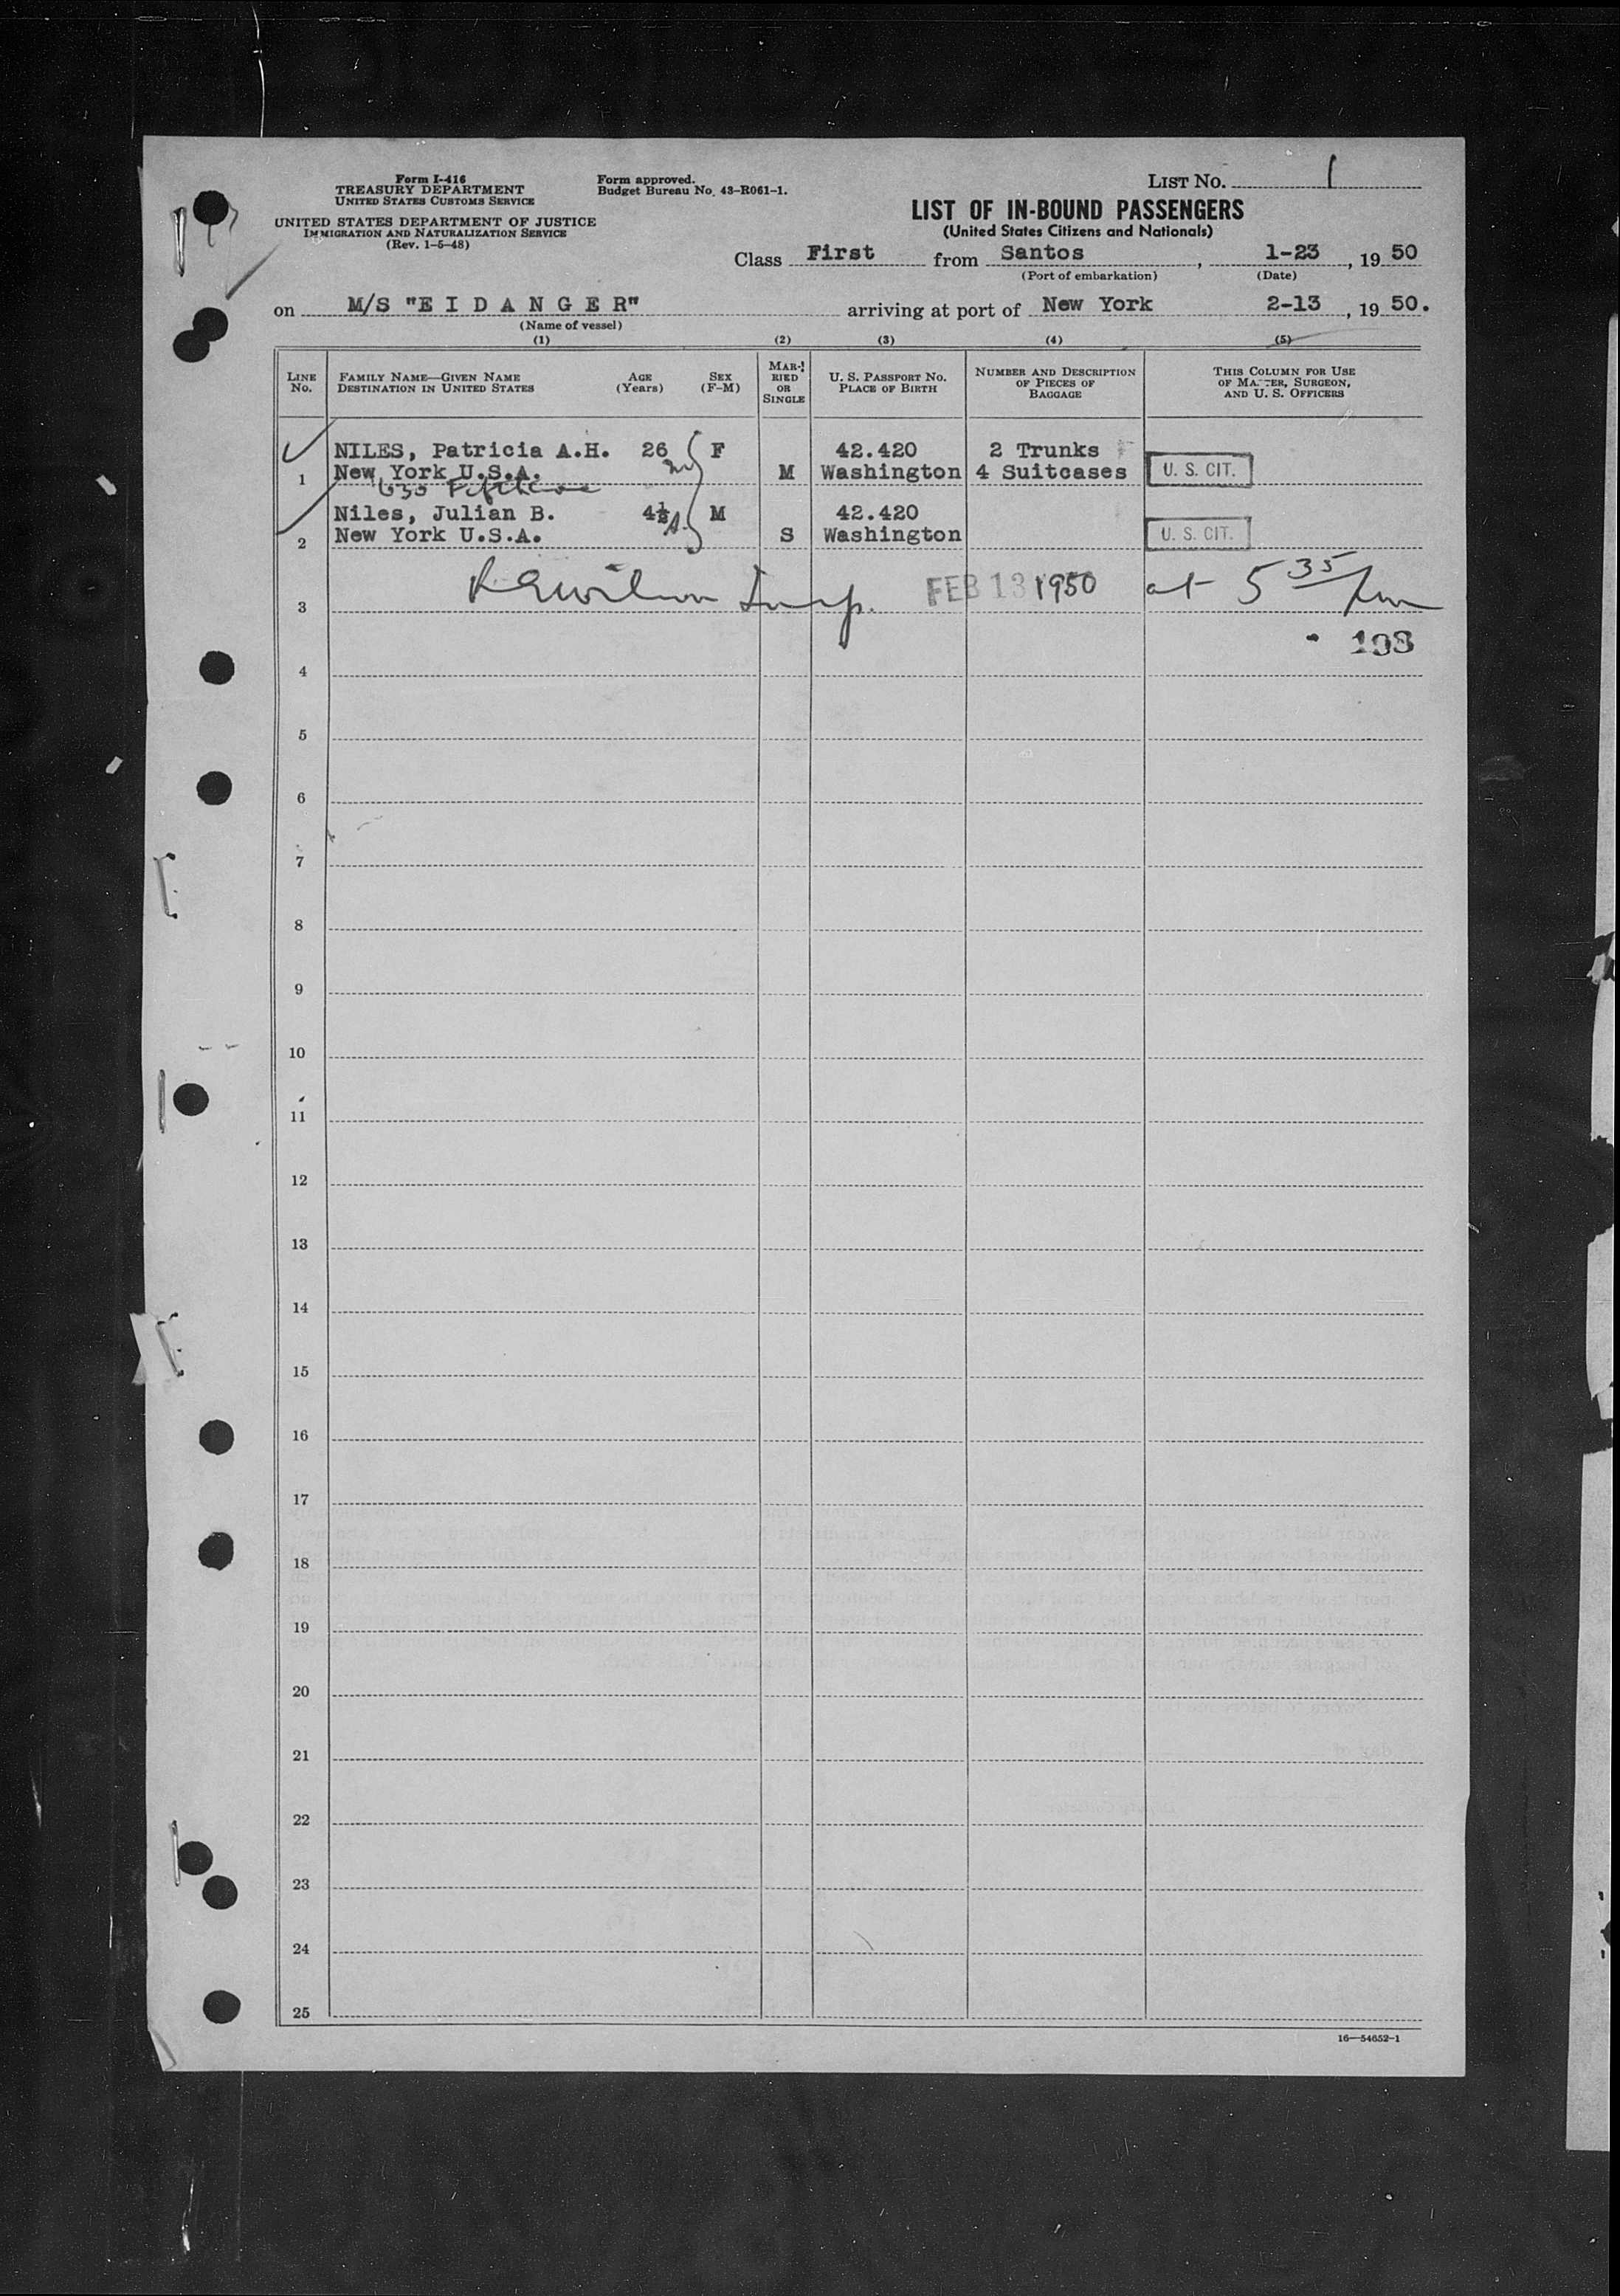 Form I-416
TREASURY DEPARTMENT
UNITED STATES CUSTOMS SERVICE
UNITED STATES DEPARTMENT OF JUSTICE
IMMIGRATION AND NATURALIZATION SERVICE
(Rev. 1-5-48)
Form approved.
Budget Bureau No. 43-R061-1.
LIST NO. 1
LIST OF IN-BOUND PASSENGERS
(United States Citizens and Nationals)
Class First from Santos, 1-23, 19 50
(Port of embarkation) (Date)
on M/S "E I D A N G E R" arriving at port of New York 2-13, 19 50.
(Name of vessel)
(1) (2) (3) (4) (5)
LINE NO. FAMILY NAME—GIVEN NAME DESTINATION IN UNITED STATES AGE (Years) SEX (F-M) MARRIED OR SINGLE U. S. PASSPORT NO. PLACE OF BIRTH NUMBER AND DESCRIPTION OF PIECES OF BAGGAGE THIS COLUMN FOR USE OF MASTER, SURGEON, AND U. S. OFFICERS
NILES, Patricia A.H. 26 F 42.420 2 Trunks
1 New York U.S.A. M Washington 4 Suitcases U. S. CIT.
630 Fifth Ave
Niles, Julian B. 4½ M 42.420
2 New York U.S.A. S Washington U. S. CIT.
3 Wilson Insp. FEB 13 1950 at 5 35 pm
198
4
5
6
7
8
9
10
11
12
13
14
15
16
17
18
19
20
21
22
23
24
25
16—54652-1